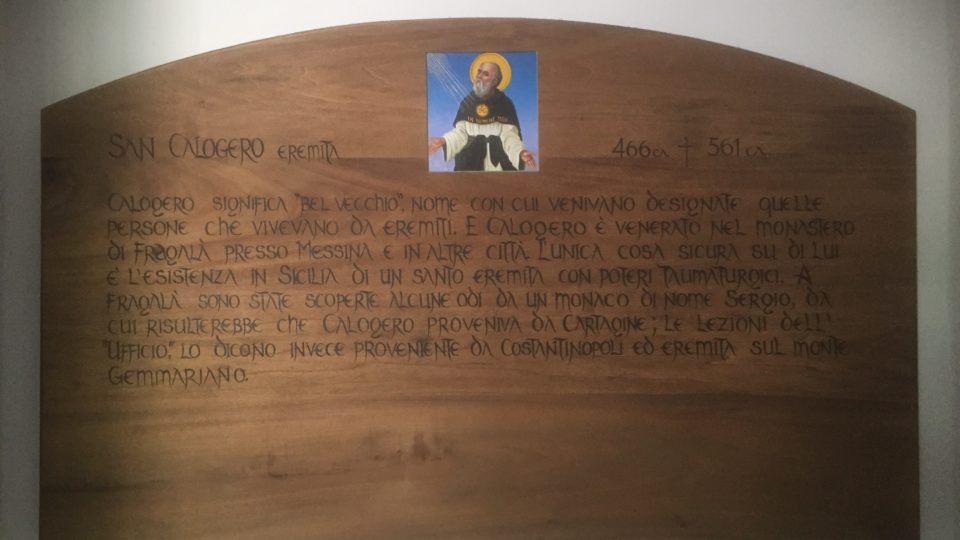 SAN CALOGERO EREMITA 466 ca † 561 ca
CALOGERO SIGNIFICA "BEL VECCHIO", NOME CON CUI VENIVANO DESIGNATE QUELLE
PERSONE CHE VIVEVANO DA EREMITI. E CALOGERO È VENERATO NEL MONASTERO
DI FRAGALÀ PRESSO MESSINA E IN ALTRE CITTÀ. L'UNICA COSA SICURA SU DI LUI
E' L'ESISTENZA IN SICILIA DI UN SANTO EREMITA CON POTERI TAUMATURGICI. A
FRAGALÀ SONO STATE SCOPERTE ALCUNE ODI DA UN MONACO DI NOME SERGIO, DA
CUI RISULTEREBBE CHE CALOGERO PROVENIVA DA CARTAGINE; LE LEZIONI DELL'
"UFFICIO", LO DICONO INVECE PROVENIENTE DA COSTANTINOPOLI ED EREMITA SUL MONTE
GEMMARIANO.